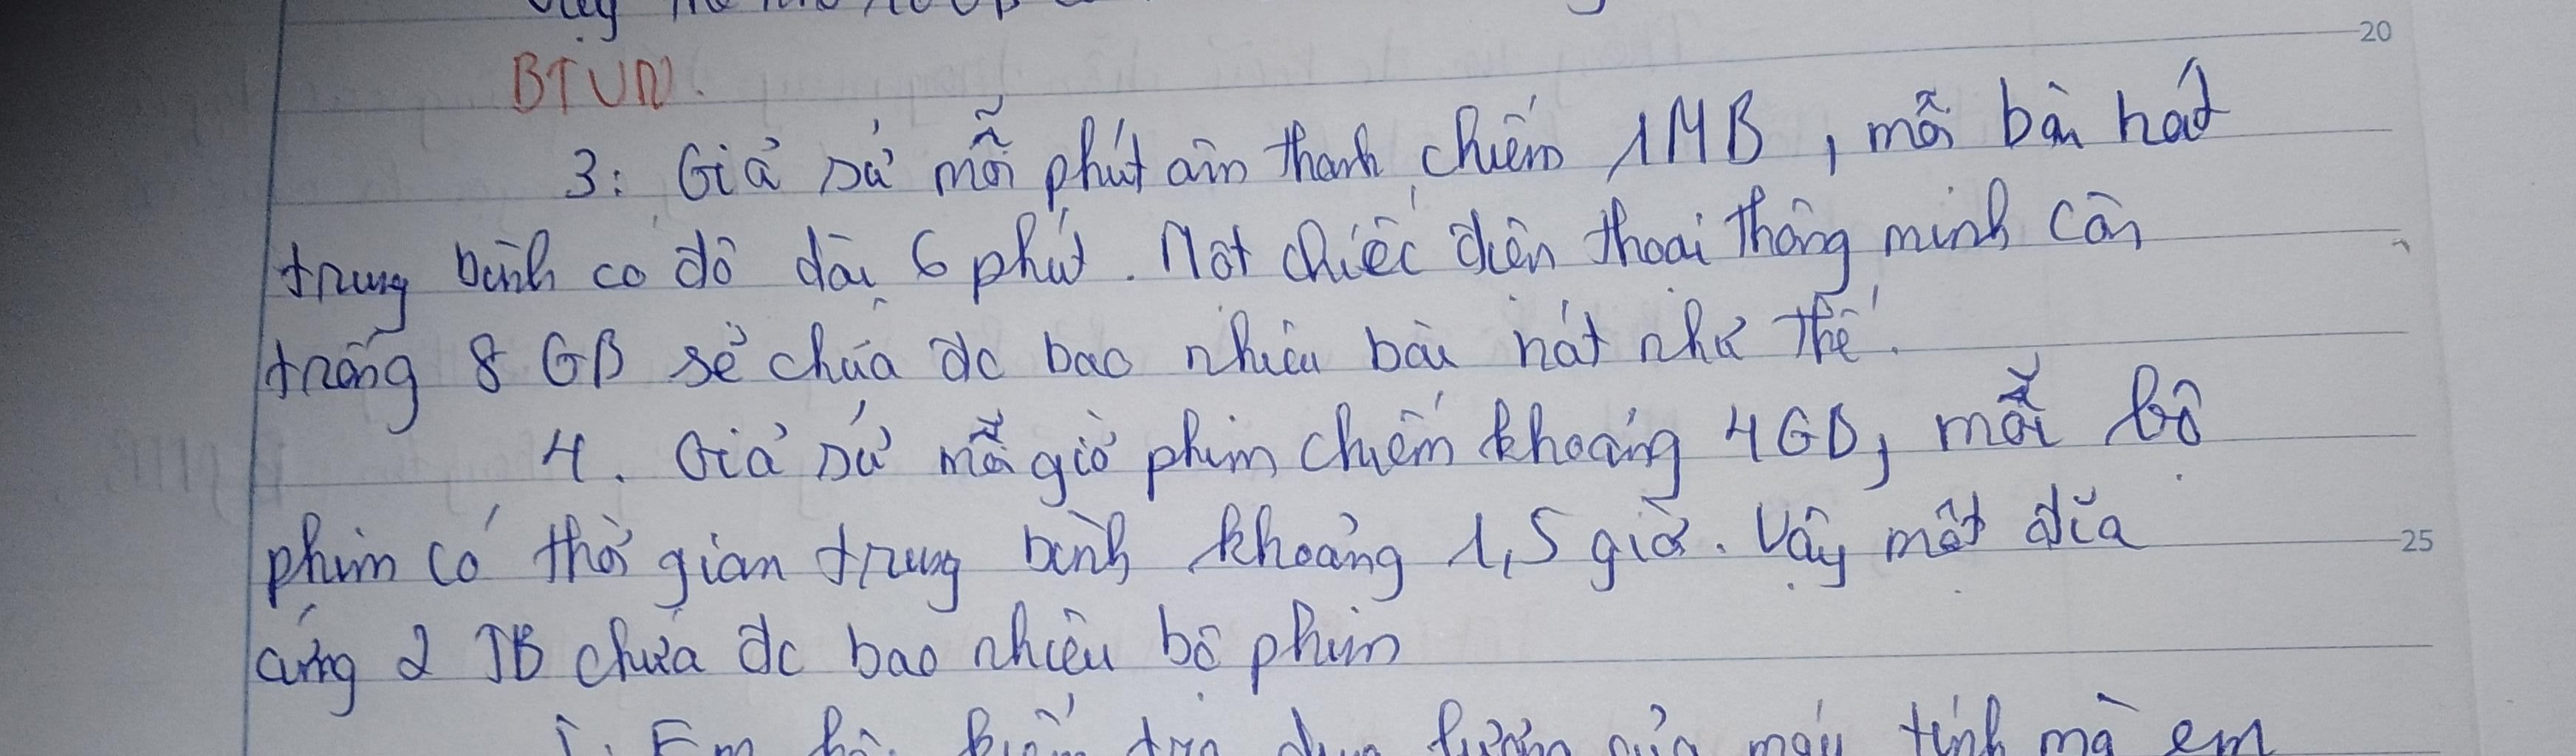 20
BTVN.
3: Giả sử mỗi phút âm thanh chiếm 1MB, mỗi bài hát
trung bình có độ dài 6 phút. Một chiếc điện thoại thông minh còn
trống 8 GB sẽ chứa đc bao nhiêu bài hát như thế.
4. Giả sử mỗi giờ phim chiếm khoảng 4GB, mỗi bộ
phim có thời gian trung bình khoảng 1,5 giờ. Vậy một đĩa
25
cứng 2 TB chứa đc bao nhiêu bộ phim
Em tra dung lượng của máy tính mà em